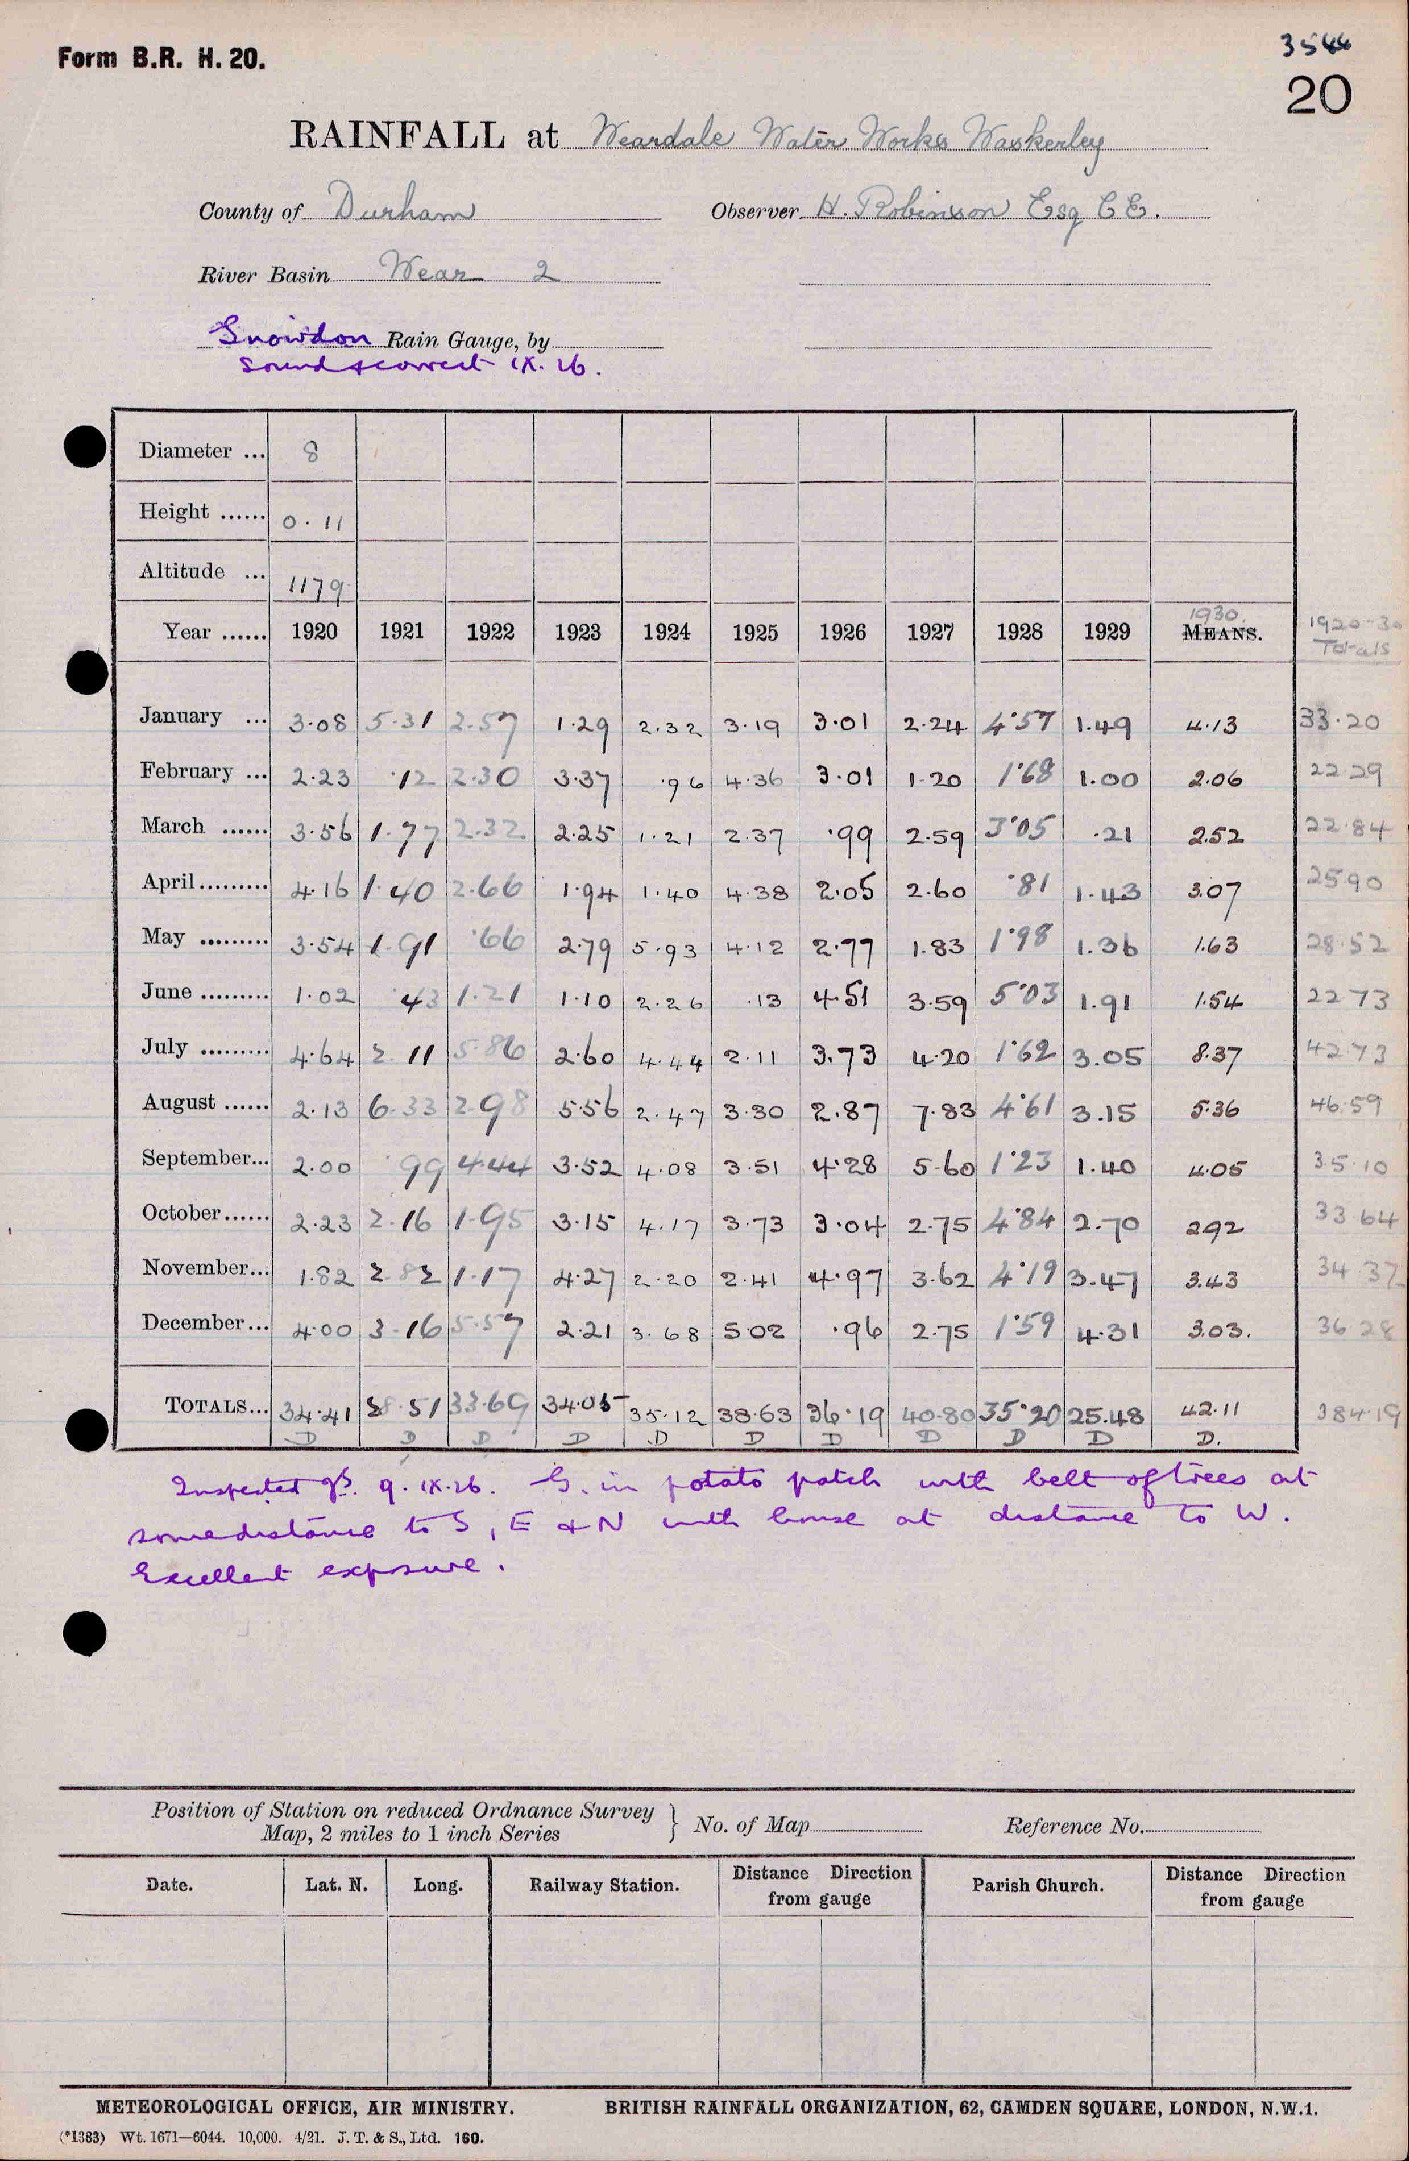 Form B.R. H. 20.
3544
20
RAINFALL at Weardale Water Works Waskerley
County of Durham Observer H. Robinson Esq C E.
River Basin Wear 2
Snowdon Rain Gauge, by
Sound & correct IX. 26.
Diameter ... 8
Height ...... 0.11
Altitude ... 1179
1930.
Year ...... 1920 1921 1922 1923 1924 1925 1926 1927 1928 1929 MEANS. 1920-30
Totals
January ... 3.08 5.31 2.57 1.29 2.32 3.19 3.01 2.24 4.57 1.49 4.13 33.20
February ... 2.23 .12 2.30 3.37 .96 4.36 3.01 1.20 1.68 1.00 2.06 22.29
March ...... 3.56 1.77 2.32 2.25 1.21 2.37 .99 2.59 3.05 .21 2.52 22.84
April ......... 4.16 1.40 2.66 1.94 1.40 4.38 2.05 2.60 .81 1.43 3.07 25.90
May ......... 3.54 1.91 .66 2.79 5.93 4.12 2.77 1.83 1.98 1.36 1.63 28.52
June ......... 1.02 .43 1.21 1.10 2.26 .13 4.51 3.59 5.03 1.91 1.54 22.73
July ......... 4.64 2.11 5.86 2.60 4.44 2.11 3.73 4.20 1.62 3.05 8.37 42.73
August ...... 2.13 6.33 2.98 5.56 2.47 3.30 2.87 7.83 4.61 3.15 5.36 46.59
September... 2.00 .99 4.44 3.52 4.08 3.51 4.28 5.60 1.23 1.40 4.05 35.10
October ...... 2.23 2.16 1.95 3.15 4.17 3.73 3.04 2.75 4.84 2.70 2.92 33.64
November... 1.82 2.82 1.17 4.27 2.20 2.41 4.97 3.62 4.19 3.47 3.43 34.37
December... 4.00 3.16 5.57 2.21 3.68 5.02 .96 2.75 1.59 4.31 3.03. 36.28
TOTALS... 34.41 28.51 33.69 34.05 35.12 38.63 36.19 40.80 35.20 25.48 42.11 384.19
D D D D D D D D D D D.
Inspected 9. IX. 26. G. in potato patch with belt of trees at
some distance to S, E & N with house at distance to W.
Excellent exposure.
Position of Station on reduced Ordnance Survey
Map, 2 miles to 1 inch Series } No. of Map Reference No.
Date. Lat. N. Long. Railway Station. Distance Direction from gauge Parish Church. Distance Direction from gauge
METEOROLOGICAL OFFICE, AIR MINISTRY. BRITISH RAINFALL ORGANIZATION, 62, CAMDEN SQUARE, LONDON, N.W.1.
(*1383) Wt. 1671—6044. 10,000. 4/21. J. T. & S., Ltd. 160.